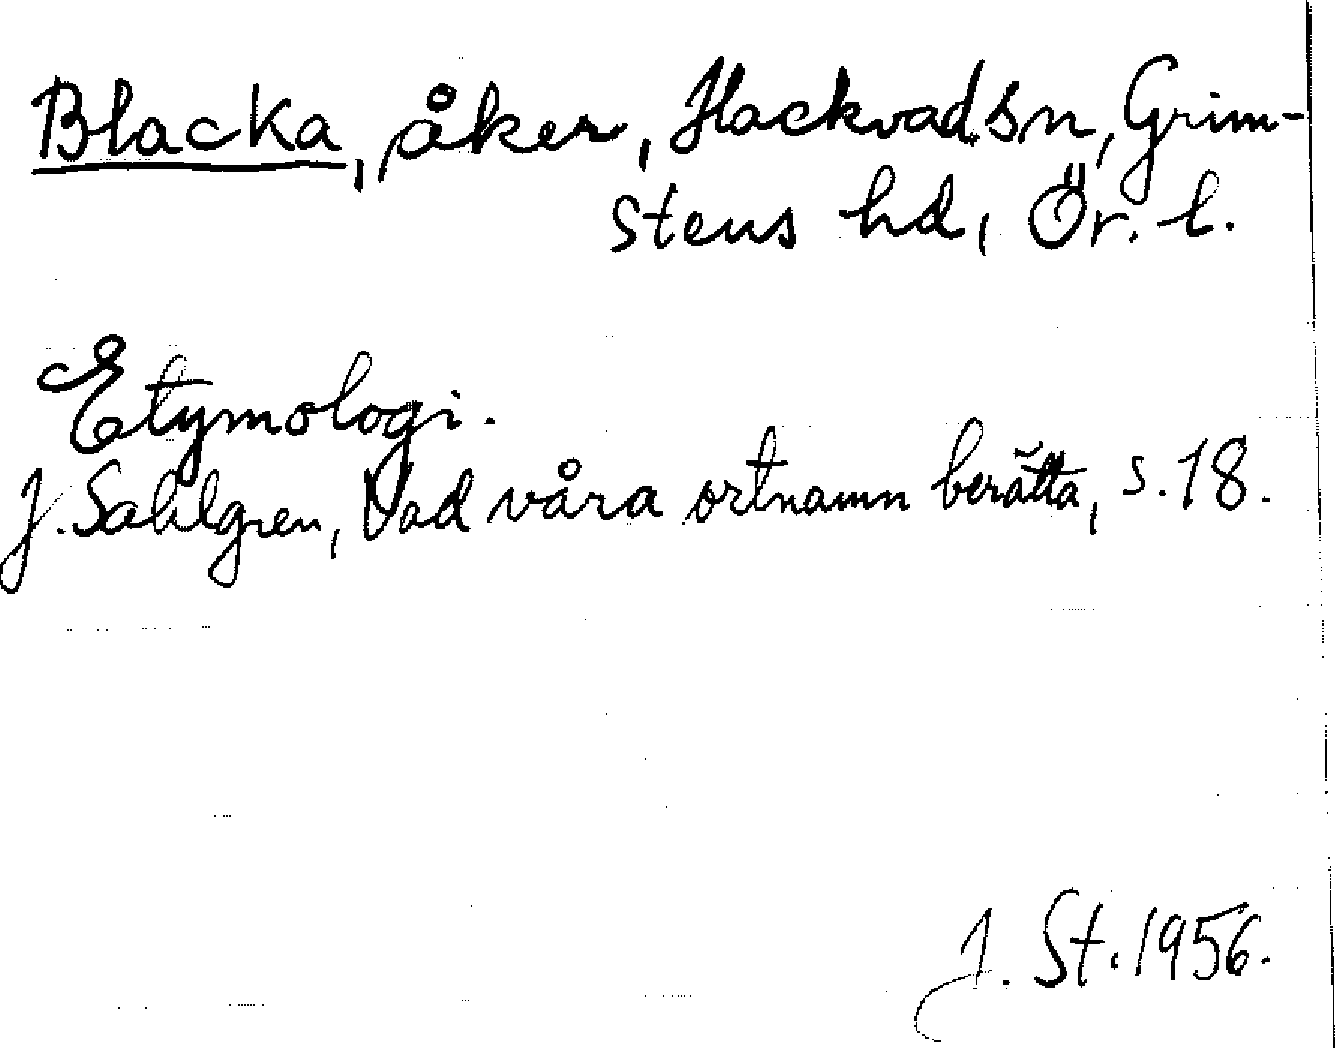 Blacka, åker, Hackvad sn, Grim-
stens hd, Ör. l.
Etymologi.
J. Sahlgren, Vad våra ortnamn berätta, s. 18.
J. St. 1956.